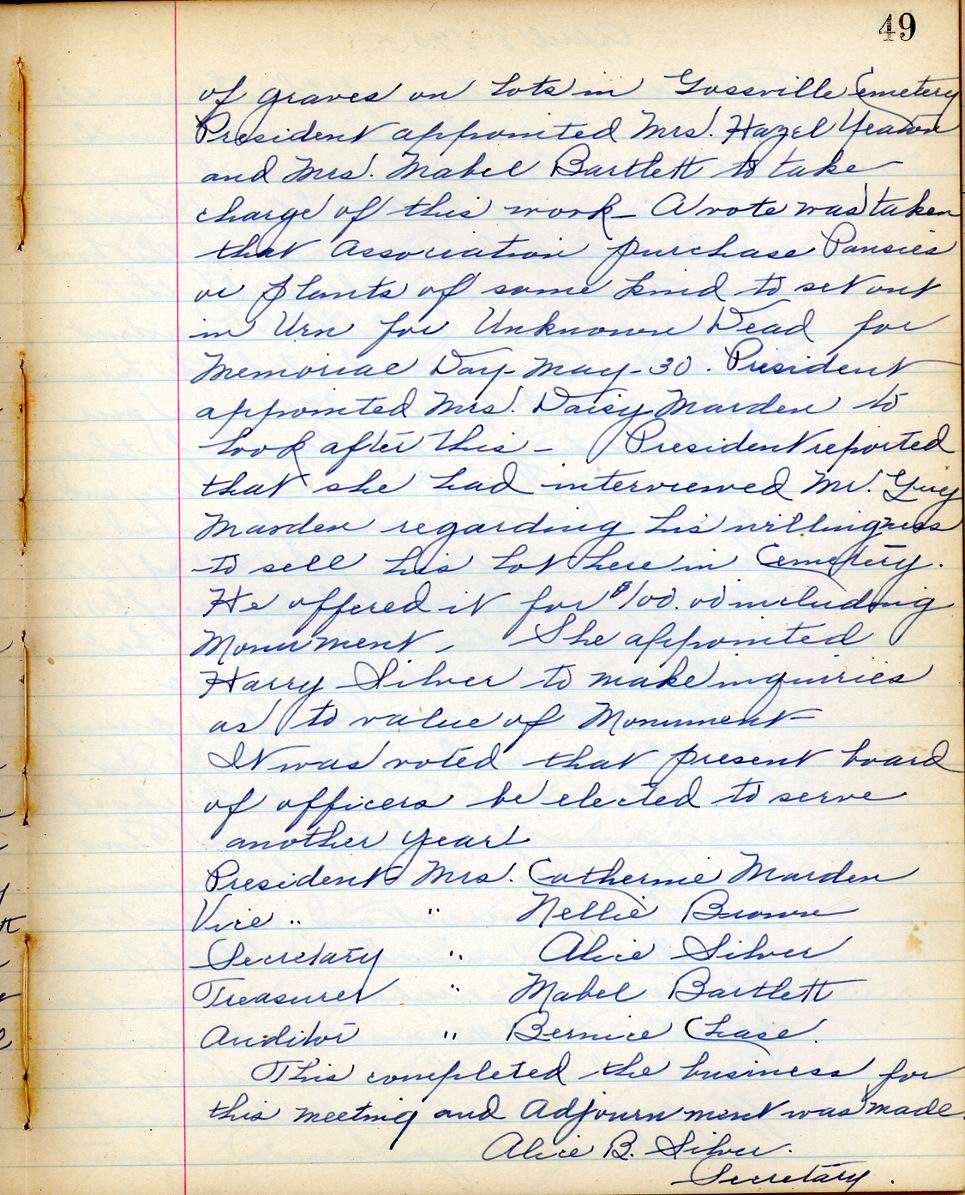 49
of graves on Lots in Gossville Cemetery
President appointed Mrs. Hazel Yeaton
and Mrs. Mabel Bartlett to take
charge of this work - A vote was taken
that Association purchase Pansies
or plants of some kind to set out
in Urn for Unknown Dead for
Memorial Day - May - 30. President
appointed Mrs. Daisy Marden to
look after this - President reported
that she had interviewed Mr. Guy
Marden regarding his willingness
to sell his Lot here in Cemetery.
He offered it for $100.00 including
Monument. She appointed
Harry Silver to make inquiries
as to value of Monument
It was voted that present board
of officers be elected to serve
another year.
President - Mrs. Catherine Marden
Vice " " Nellie Brown
Secretary " Alice Silver
Treasurer " Mabel Bartlett
Auditor " Bernice Chase.
This completed the business for
this meeting and Adjournment was made.
Alice B. Silver.
Secretary.